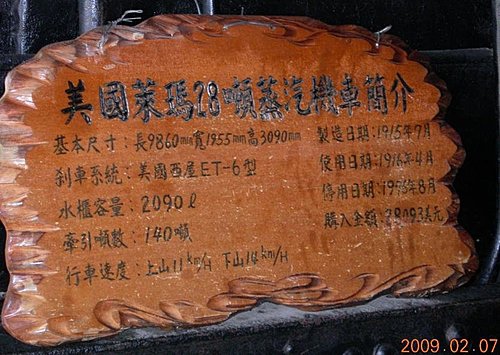 美國萊瑪28噸蒸汽機車簡介
基本尺寸：長9860mm寬1955mm高3090mm
製造日期：1915年7月
剎車系統：美國西屋ET-6型
使用日期：1916年4月
水櫃容量：2090ℓ
停用日期：1996年8月
牽引噸數：140噸
購入金額：28093美元
行車速度：上山11km/H 下山14km/H
2009.02.07